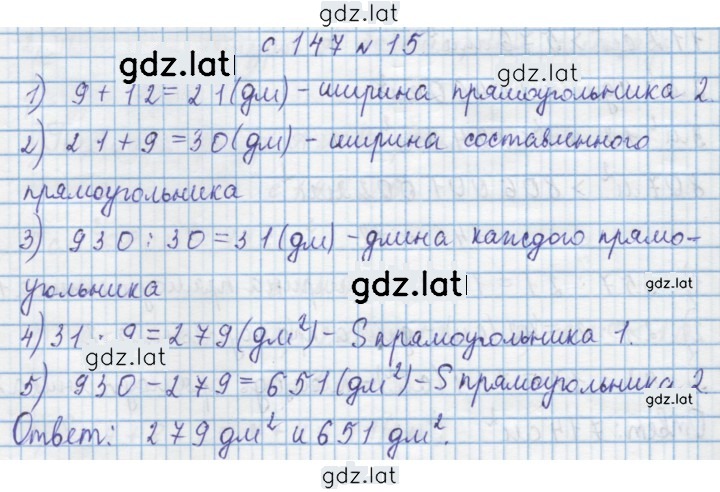 gdz.lat
с 147 № 15
gdz.lat
gdz.lat
1) 9 + 12 = 21 (дм) - ширина прямоугольника 2.
2) 21 + 9 = 30 (дм) - ширина составленного
прямоугольника
gdz.lat
3) 930 : 30 = 31 (дм) - длина каждого прямо-
угольника
gdz.lat
gdz.lat
4) 31 · 9 = 279 (дм²) - S прямоугольника 1.
gdz.lat
5) 930 - 279 = 651 (дм²) - S прямоугольника 2
gdz.lat
Ответ: 279 дм² и 651 дм².
gdz.lat